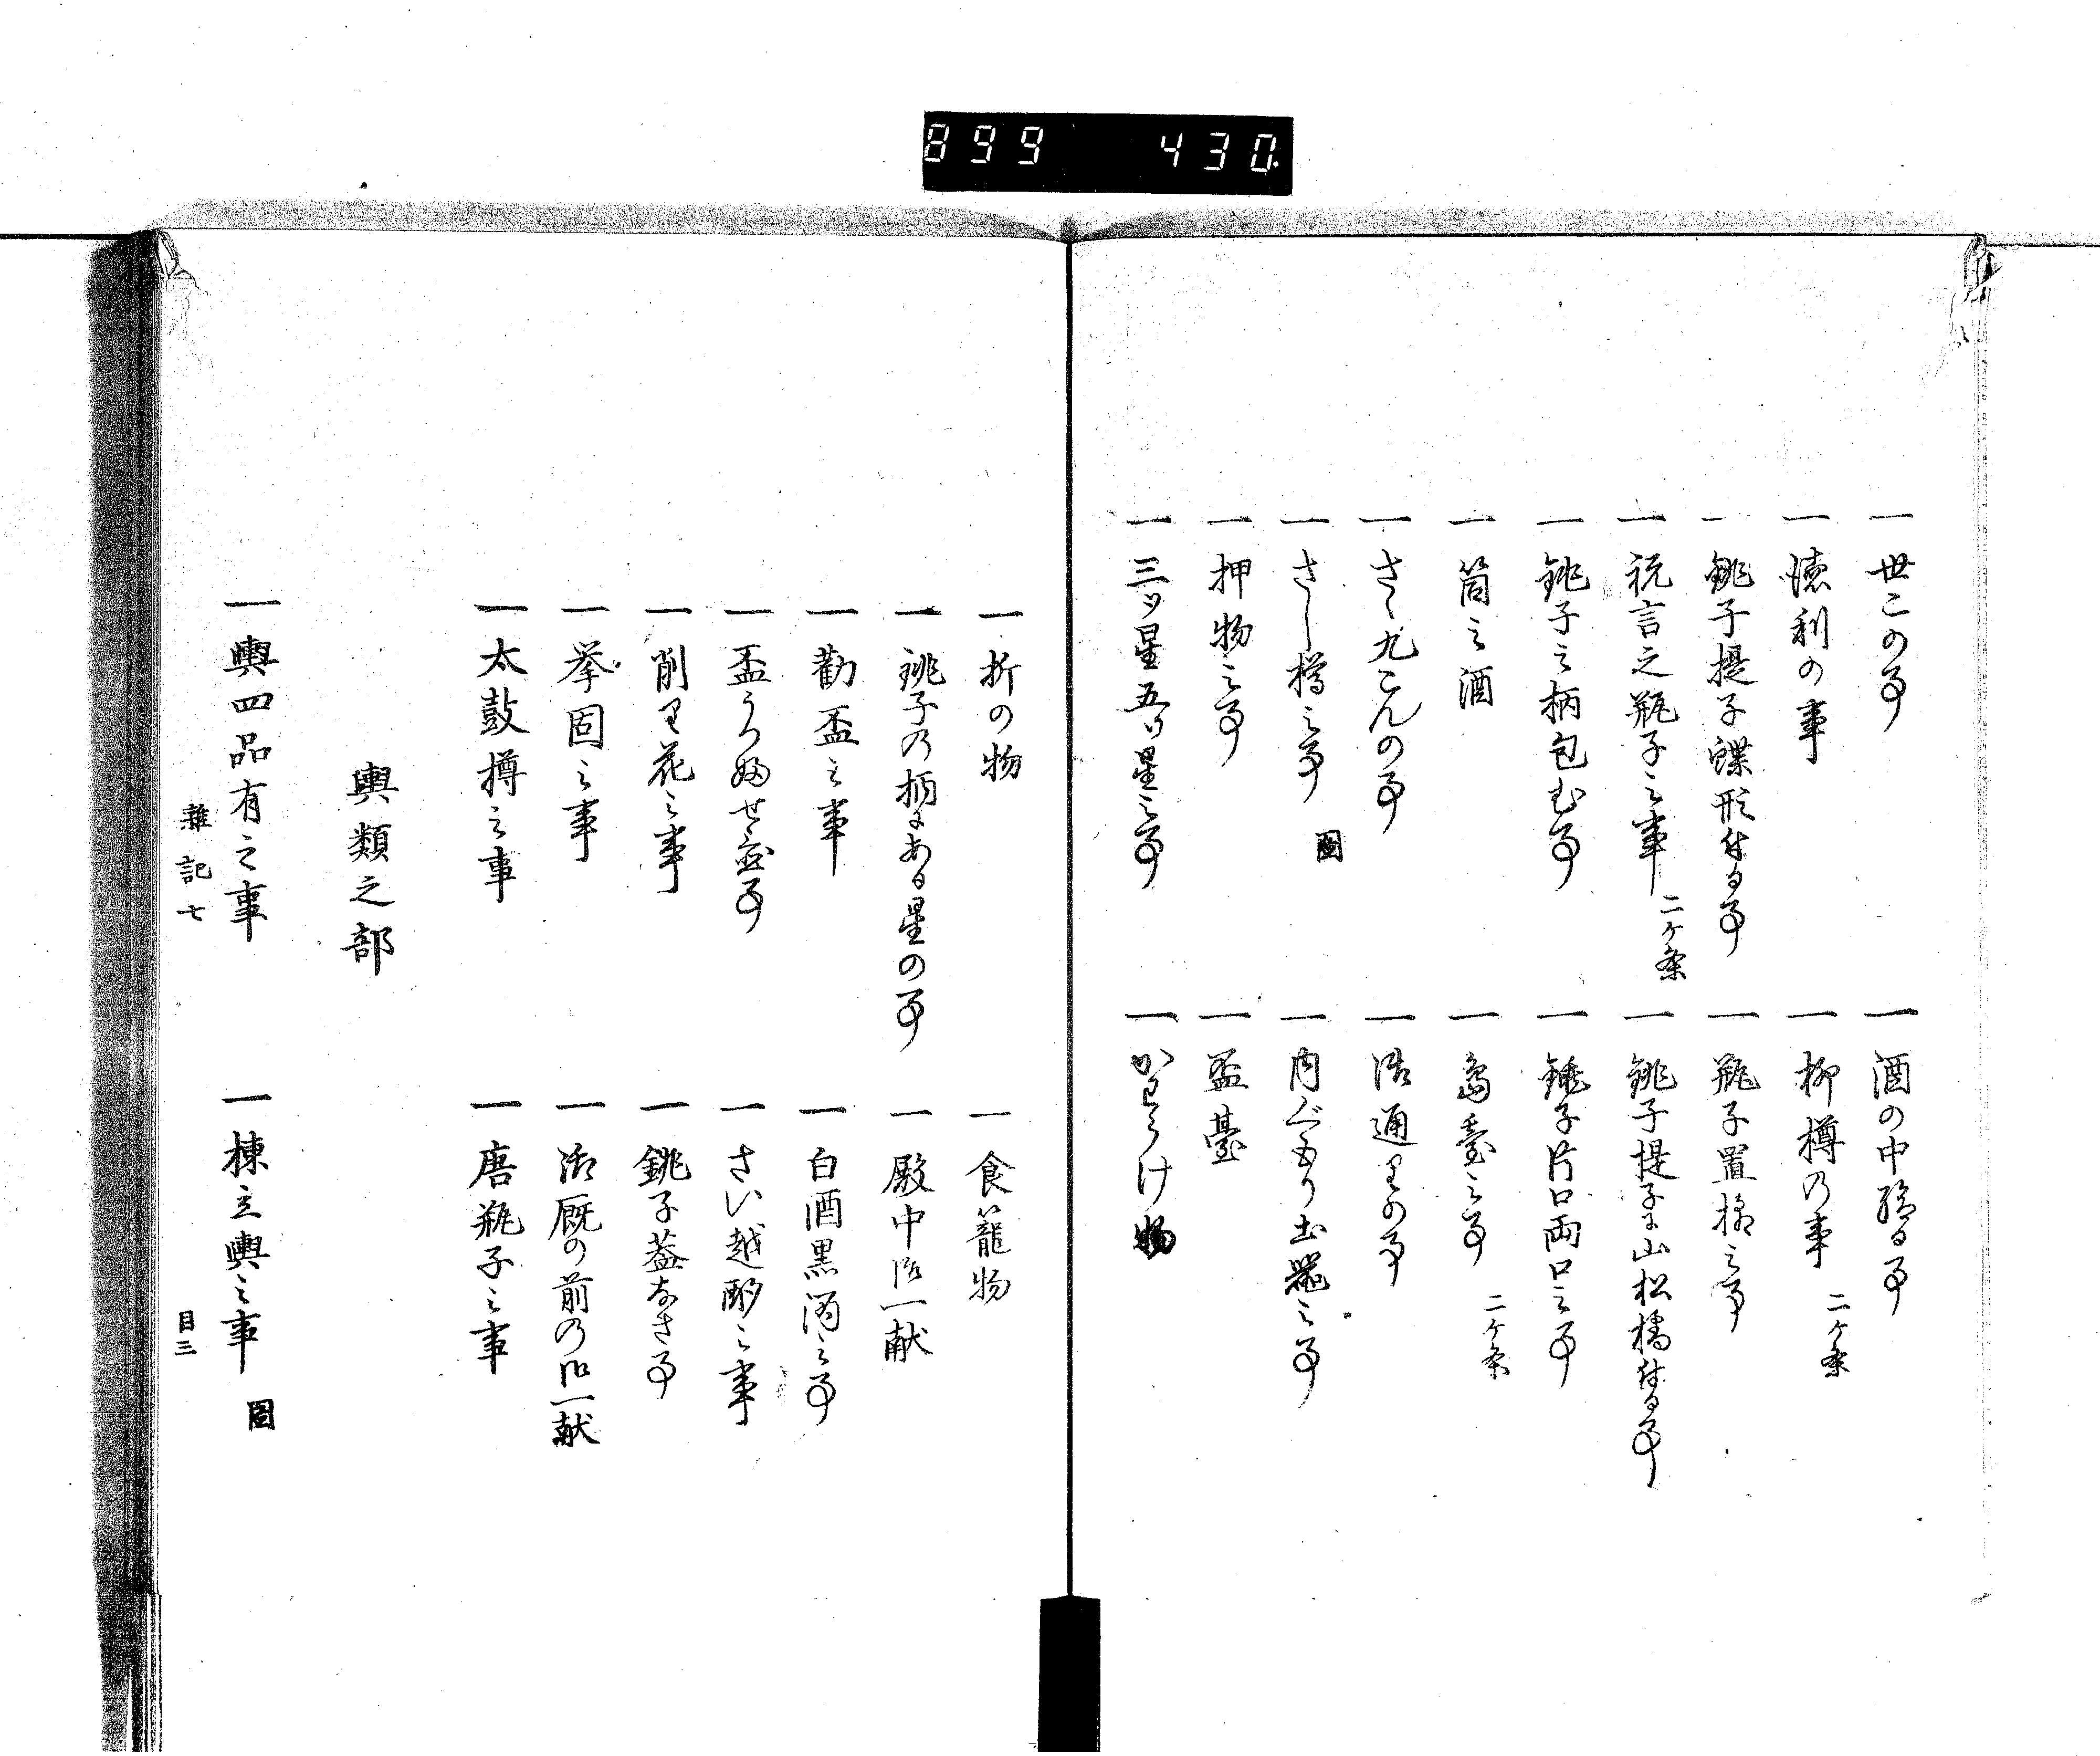 899 430
一 世この事
一 酒の中絵る事
一 徳利の事
一 柳樽の事 二ヶ条
一 銚子提子蝶形付る事
一 瓶子置様之事
一 祝言之瓶子之事 二ヶ条
一 銚子提子に山松橘付る事
一 銚子之柄包む事
一 銚子片口両口之事
一 筒之酒
一 島臺之事 二ヶ条
一 さゝ九こんの事
一 御通りの事
一 さし樽之事 圖
一 内ぐもり土器之事
一 押物之事
一 盃臺
一 三ツ星五ツ星之事
一 かわらけ物
一 折の物
一 食籠物
一 銚子の柄にある星の事
一 殿中御一献
一 勸盃之事
一 白酒黒酒之事
一 盃うかふせ
一 さい越酌之事
一 削り花之事
一 銚子蓋なき事
一 拳固之事
一 御厩の前の御一献
一 太鼓樽之事
一 唐瓶子之事
輿類之部
一 輿四品有之事
一 棟立輿之事 圖
雑記七 目三